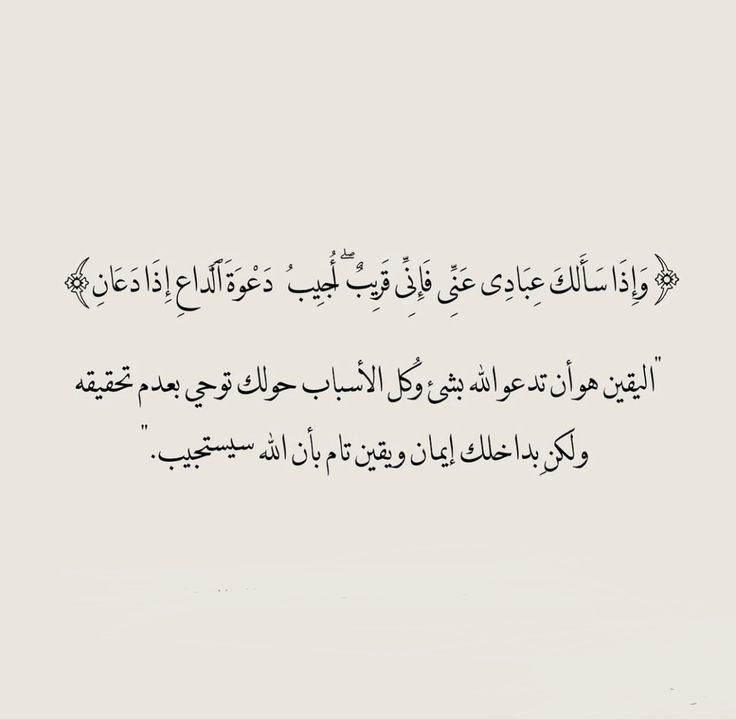 ﴿وَإِذَا سَأَلَكَ عِبَادِى عَنِّى فَإِنِّى قَرِيبٌ ۖ أُجِيبُ دَعْوَةَ ٱلدَّاعِ إِذَا دَعَانِ﴾
"اليقين هو أن تدعو الله بشئ وكُل الأسباب حولك توحي بعدم تحقيقه
ولكنِ بداخلك إيمان ويقين تام بأن الله سيستجيب."